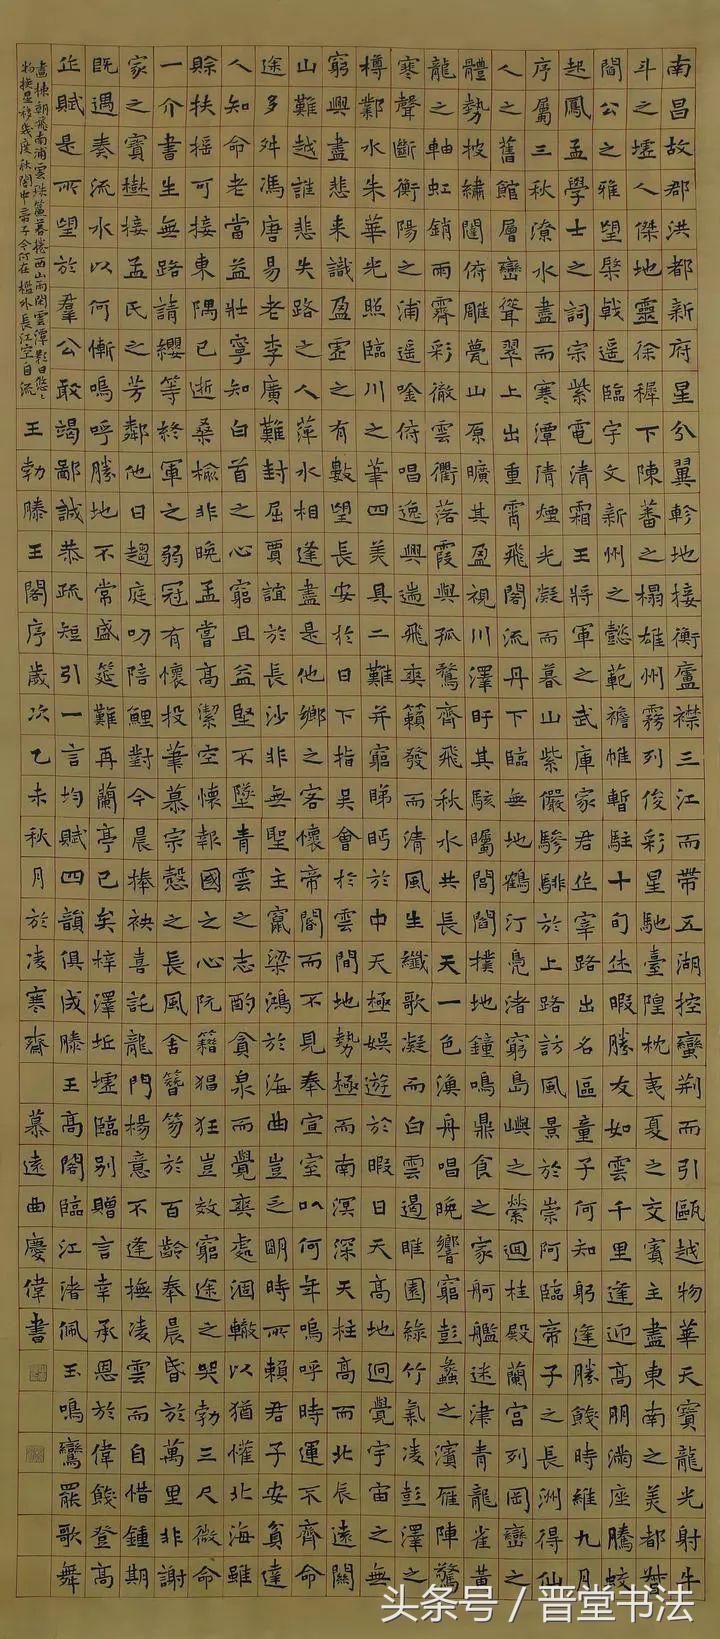 南昌故郡洪都新府星分翼軫地接衡廬襟三江而帶五湖控蠻荊而引甌越物華天寶龍光射牛
斗之墟人傑地靈徐穉下陳蕃之榻雄州霧列俊彩星馳臺隍枕夷夏之交賓主盡東南之美都督
閻公之雅望棨戟遙臨宇文新州之懿範襜帷暫駐十旬休暇勝友如雲千里逢迎高朋滿座騰蛟
起鳳孟學士之詞宗紫電清霜王將軍之武庫家君作宰路出名區童子何知躬逢勝餞時維九月
序屬三秋潦水盡而寒潭清煙光凝而暮山紫儼驂騑於上路訪風景於崇阿臨帝子之長洲得仙
人之舊館層巒聳翠上出重霄飛閣流丹下臨無地鶴汀鳧渚窮島嶼之縈迴桂殿蘭宮列岡巒之
體勢披繡闥俯雕甍山原曠其盈視川澤盱其駭矚閭閻撲地鐘鳴鼎食之家舸艦迷津青龍雀黃
龍之軸虹銷雨霽彩徹雲衢落霞與孤鶩齊飛秋水共長天一色漁舟唱晚響窮彭蠡之濱雁陣驚
寒聲斷衡陽之浦遙唫俯唱逸興遄飛爽籟發而清風生纖歌凝而白雲遏睢園綠竹氣凌彭澤之
樽鄴水朱華光照臨川之筆四美具二難并窮睇眄於中天極娛遊於暇日天高地迥覺宇宙之無
窮興盡悲來識盈虛之有數望長安於日下指吳會於雲間地勢極而南溟深天柱高而北辰遠關
山難越誰悲失路之人萍水相逢盡是他鄉之客懷帝閽而不見奉宣室以何年嗚呼時運不齊命
途多舛馮唐易老李廣難封屈賈誼於長沙非無聖主竄梁鴻於海曲豈乏明時所賴君子安貧達
人知命老當益壯寧知白首之心窮且益堅不墜青雲之志酌貪泉而覺爽處涸轍以猶懽北海雖
賒扶搖可接東隅已逝桑榆非晚孟嘗高潔空懷報國之心阮籍猖狂豈效窮途之哭勃三尺微命
一介書生無路請纓等終軍之弱冠有懷投筆慕宗愨之長風舍簪笏於百齡奉晨昏於萬里非謝
家之寶樹接孟氏之芳鄰他日趨庭叨陪鯉對今晨捧袂喜託龍門楊意不逢撫凌雲而自惜鍾期
既遇奏流水以何慚嗚呼勝地不常盛筵難再蘭亭已矣梓澤坵墟臨別贈言幸承恩於偉餞登高
作賦是所望於羣公敢竭鄙誠恭疏短引一言均賦四韻俱成滕王高閣臨江渚佩玉鳴鸞罷歌舞
畫棟朝飛南浦雲珠簾暮捲西山雨閒雲潭影日悠〻
物換星移幾度秋閣中帝子今何在檻外長江空自流
王勃滕王閣序歲次乙未秋月於凌寒齋 慕遠曲慶偉書
头条号 / 晋堂书法